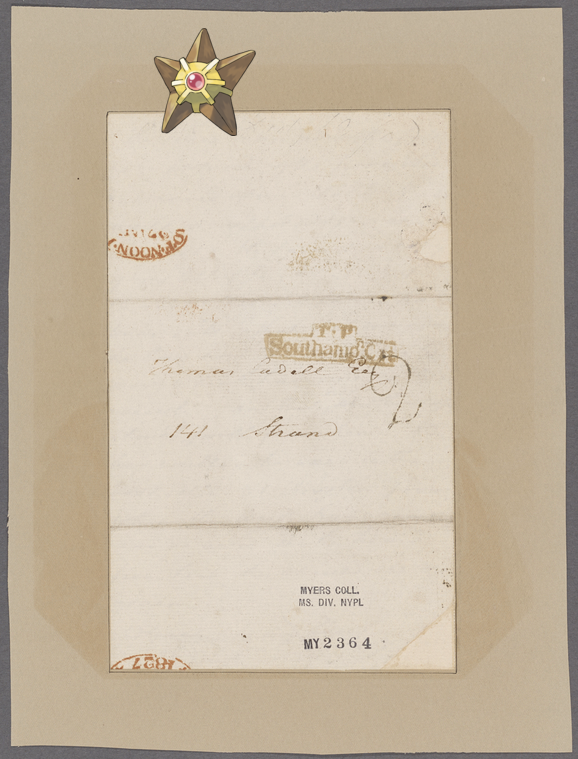 NOON
T.P
Southamp
Thomas Cadell Esq
2
141 Strand
MYERS COLL.
MS. DIV. NYPL
MY2364
1827